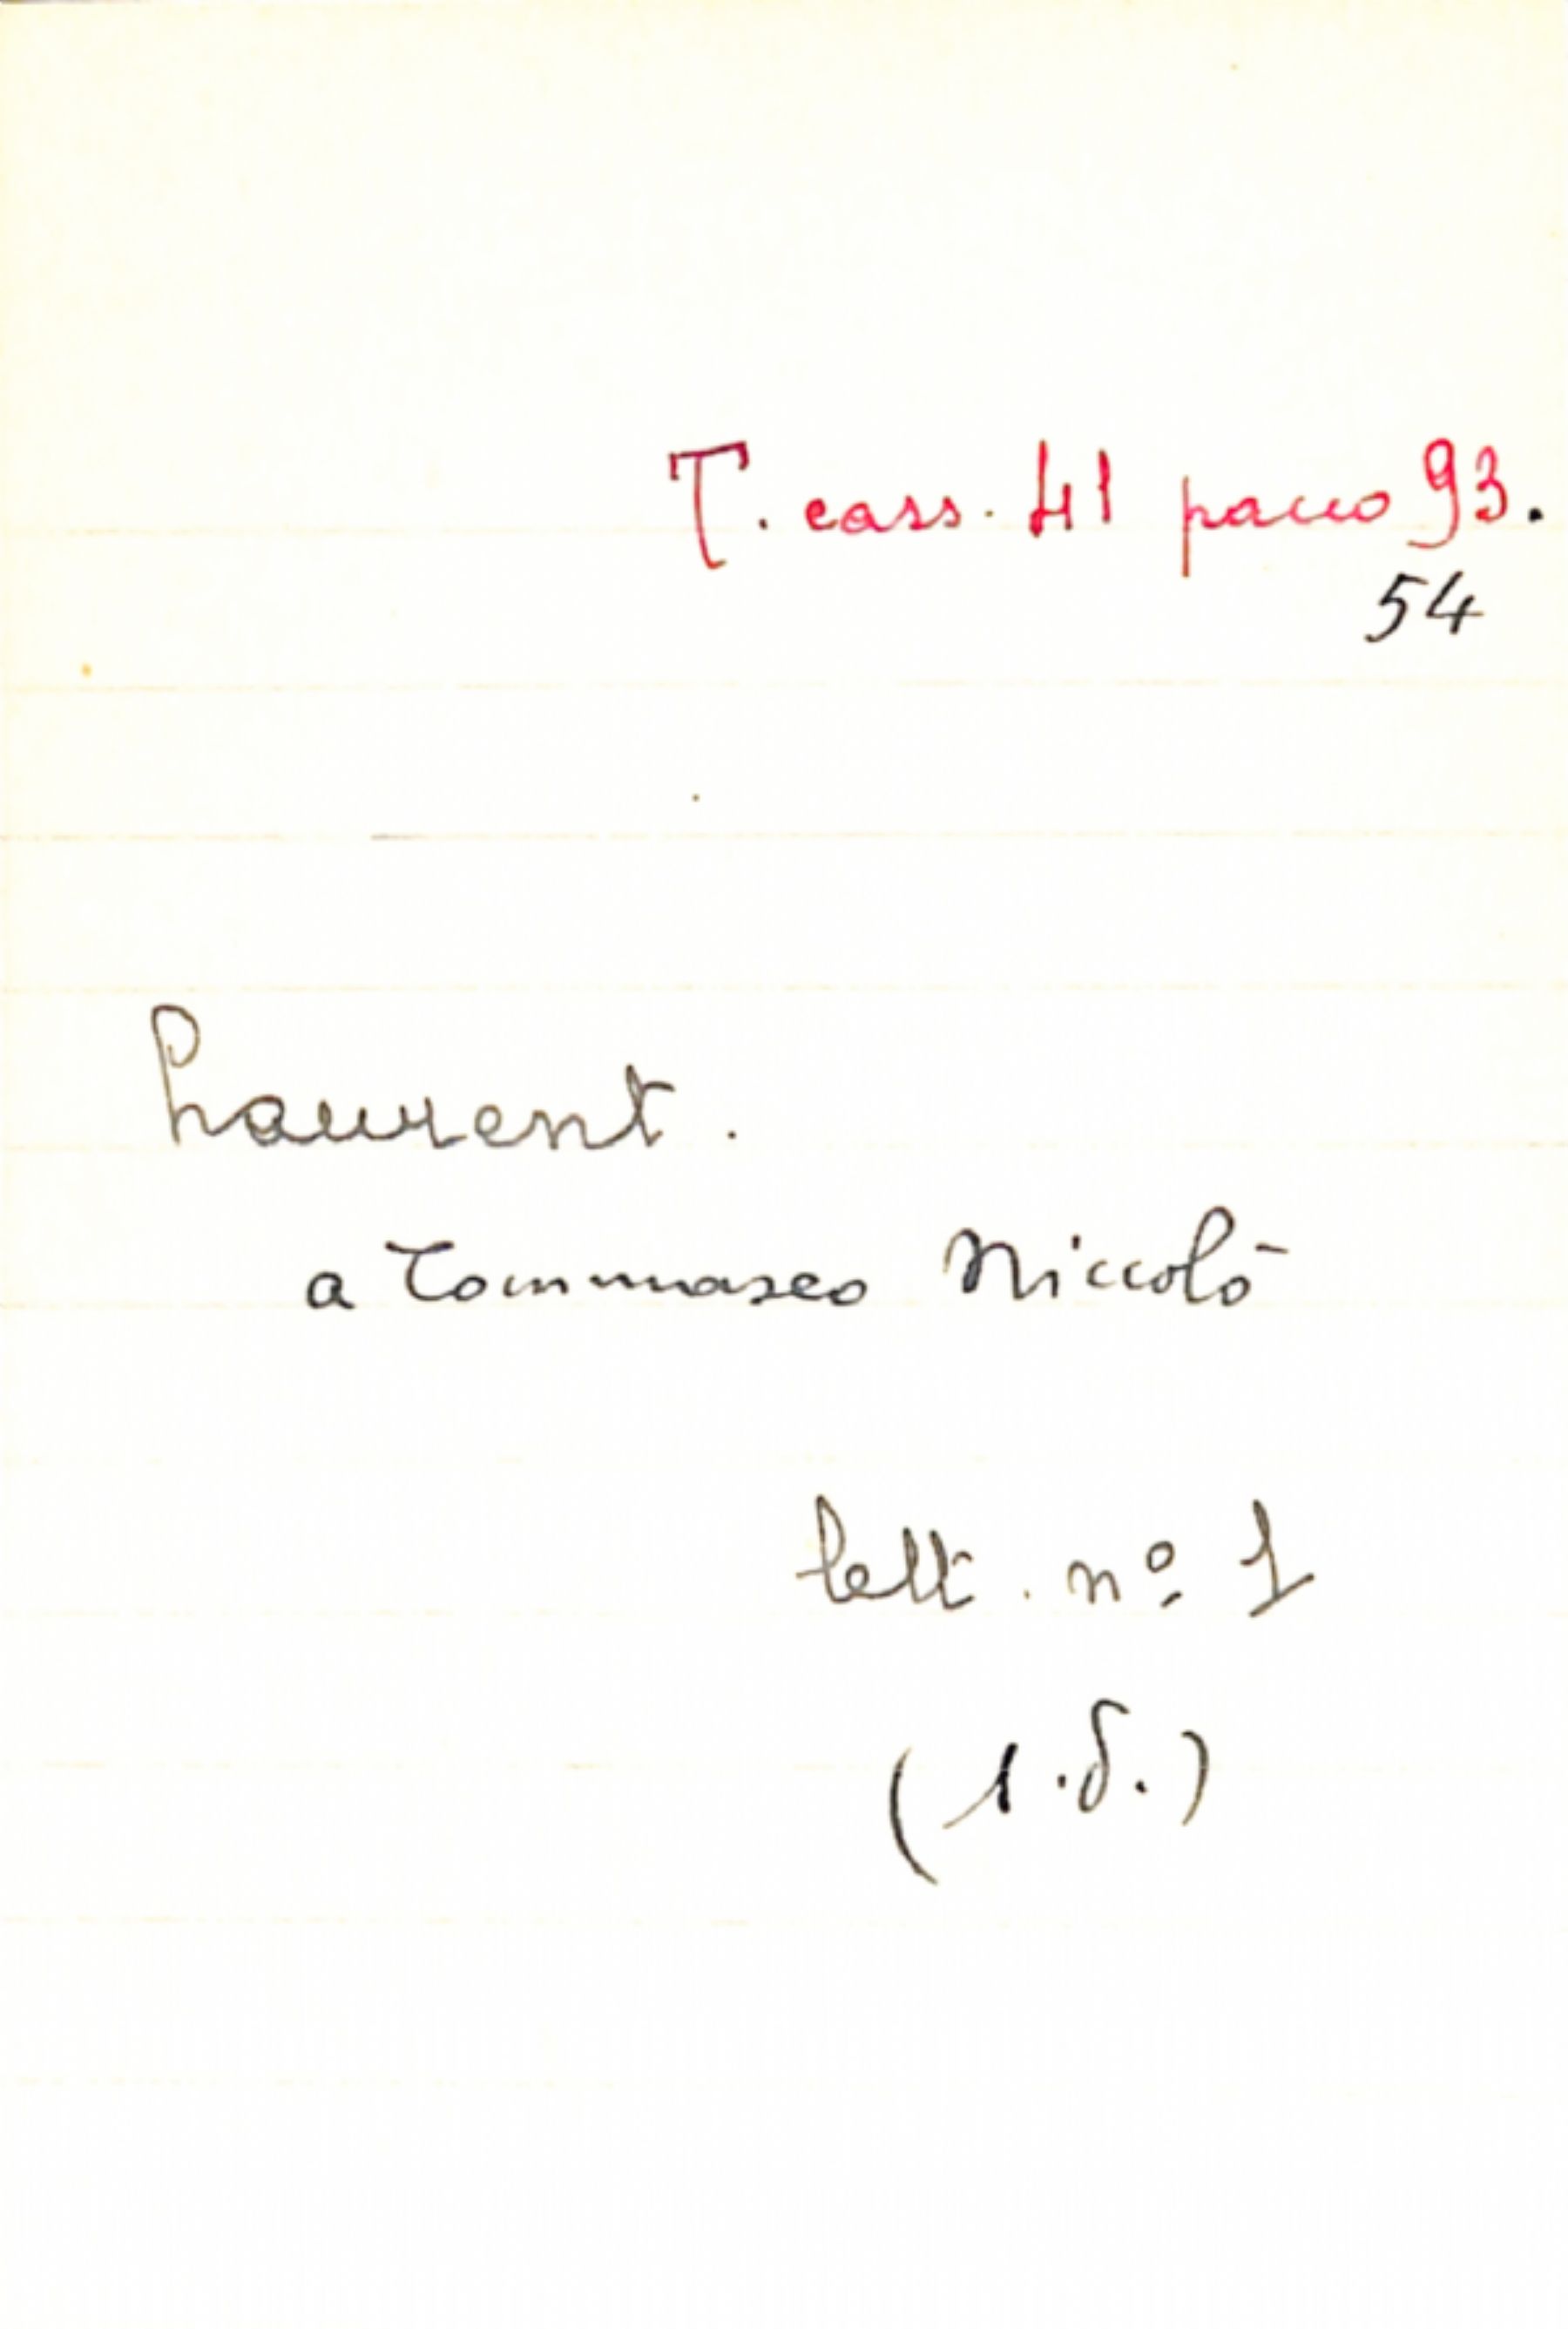 T. cass. 41 pacco 93.
54
Laurent.
a Tommaseo Niccolò
lett. nº 1
(s.d.)